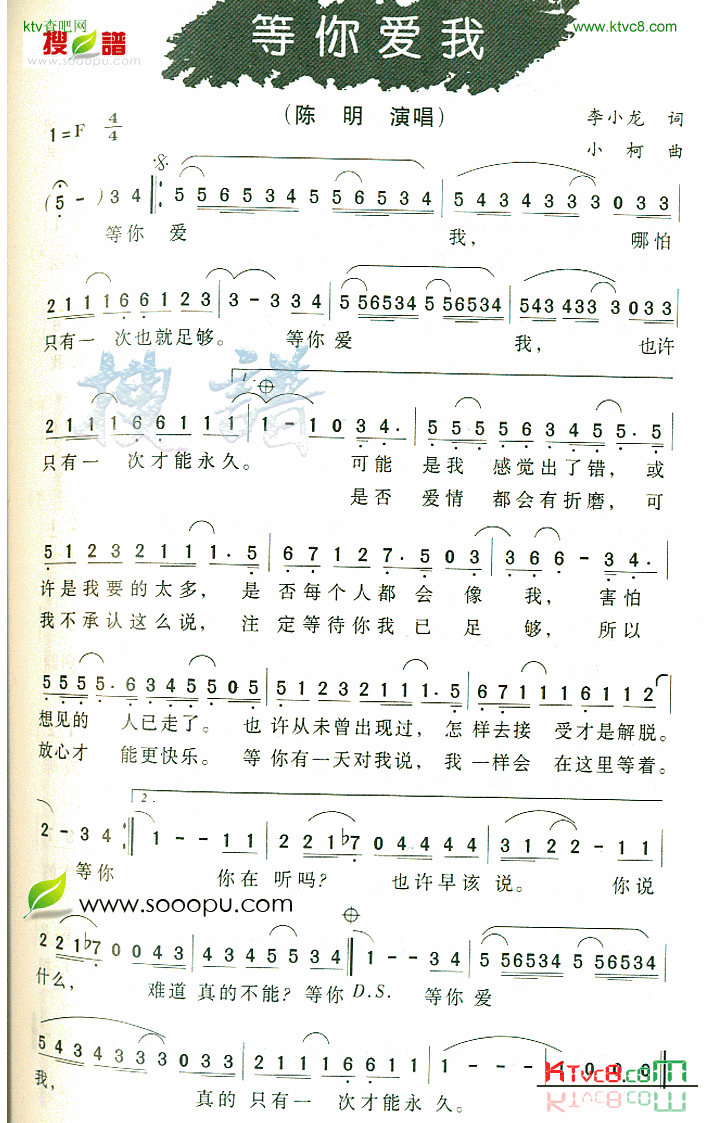 ktv查吧网
www.ktvc8.com
搜譜
www.sooopu.com
等你爱我
(陈 明 演唱)
李小龙 词
小 柯 曲
1=F 4/4
(5 - ) 3 4 5 5 6 5 3 4 5 5 6 5 3 4 5 4 3 4 3 3 3 0 3 3
等你 爱 我, 哪怕
2 1 1 1 6 6 1 2 3 3 - 3 3 4 5 56534 5 56534 543 433 3 0 3 3
只有一 次也就足够。 等你 爱 我, 也许
搜譜
1.
2 1 1 1 6 6 1 1 1 1 - 1 0 3 4. 5 5 5 5 6 3 4 5 5. 5
只有一 次才能永久。 可能 是我 感觉出了错, 或
是否 爱情 都会有折磨, 可
5 1 2 3 2 1 1 1. 5 6 7 1 2 7. 5 0 3 3 6 6 - 3 4.
许是我要的太多, 是 否每个人都 会 像 我, 害怕
我不承认这么说, 注 定等待你我 已 足 够, 所以
5 5 5 5. 6 3 4 5 5 0 5 5 1 2 3 2 1 1 1. 5 6 7 1 1 1 6 1 1 2
想见的 人已走了。 也 许从未曾出现过, 怎 样去接 受才是解脱。
放心才 能更快乐。 等 你有一天对我说, 我 一样会 在这里等着。
2.
2 - 3 4 1 - - 1 1 2 2 1 b7 0 4 4 4 4 3 1 2 2 - 1 1
等你 你在 听吗? 也许早该 说。 你说
www.sooopu.com
2 2 1 b7 0 0 4 3 4 3 4 5 5 3 4 1 - - 3 4 5 56534 5 56534
什么, 难道 真的不能? 等你 D.S. 等你 爱
5 4 3 4 3 3 3 0 3 3 2 1 1 1 6 6 1 1 1 - - - 1 0 0 0
我, 真的 只有一 次才能永 久。
KTvc8.com